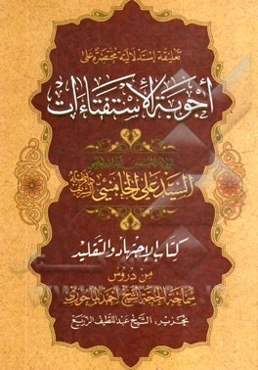 تعليقة استدلالية مختصرة على
أجوبة الاستفتاءات
السيد علي الخامنئي
كتاب الاجتهاد والتقليد
من دروس
سماحة الحجة الشيخ أحمد الماحوزي
تحرير: الشيخ عبد اللطيف الزريع